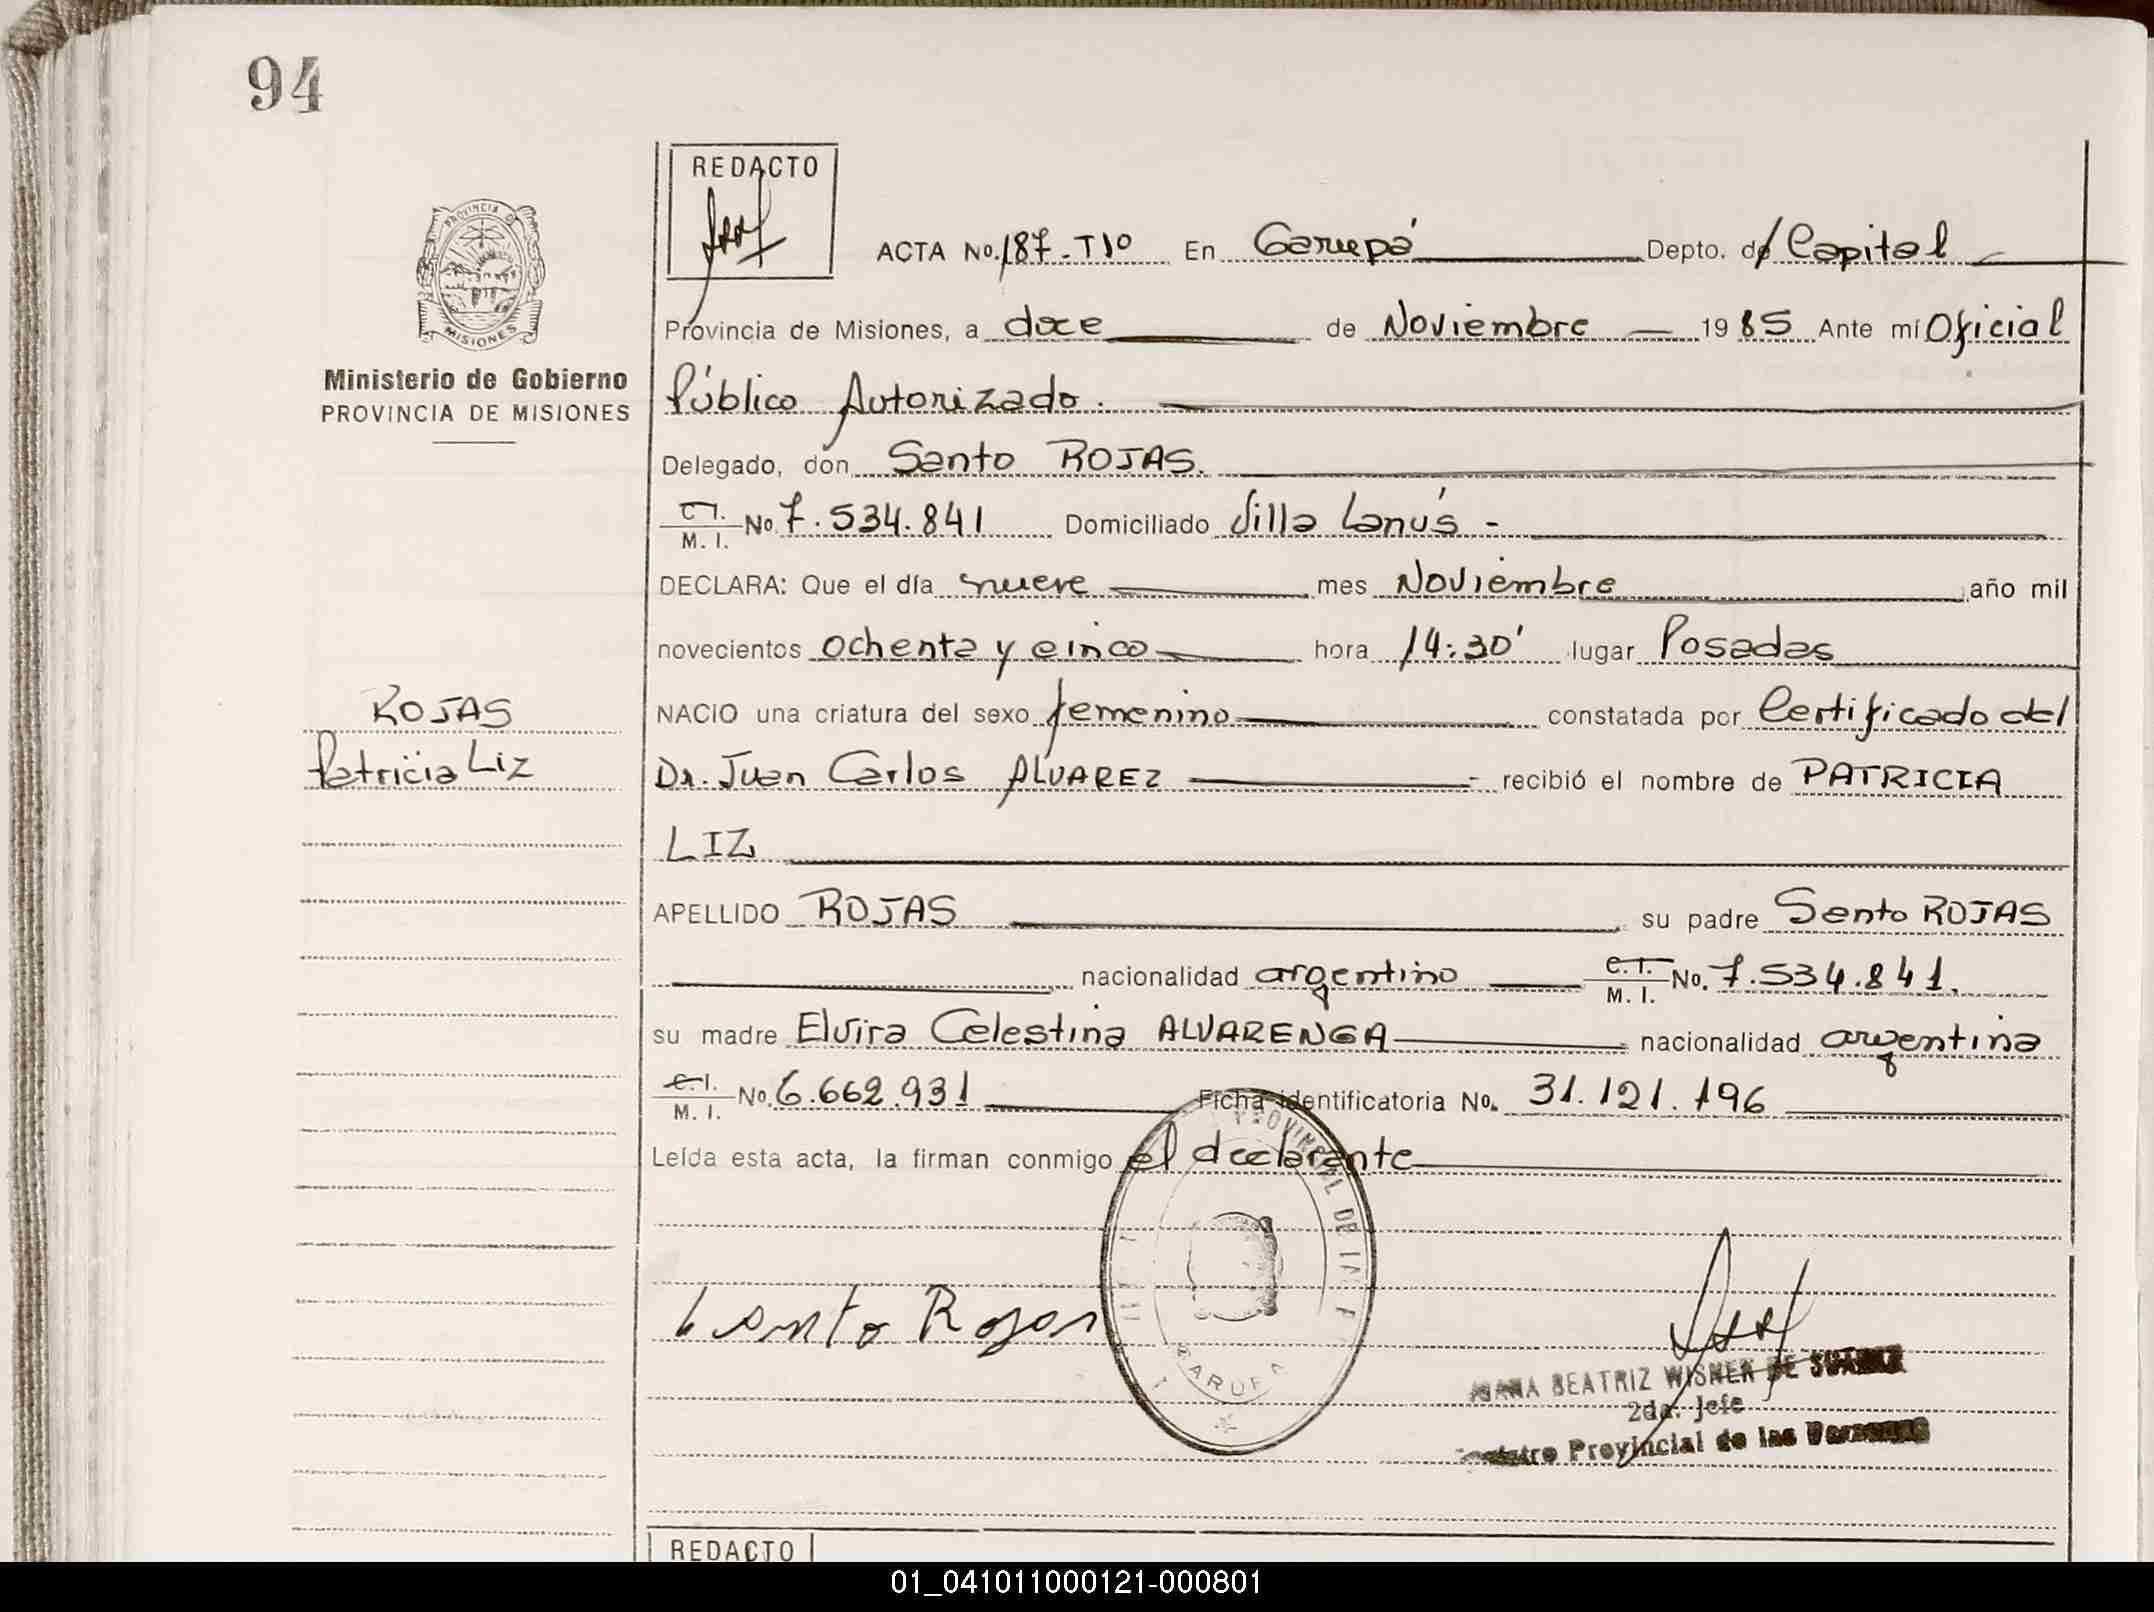 94
REDACTO
PROVINCIA D
MISIONES
Ministerio de Gobierno
PROVINCIA DE MISIONES
ACTA No. 187-T1º En Garupá Depto. d/ Capital
Provincia de Misiones, a doce de Noviembre 1985 Ante mí Oficial
Público Autorizado.
Delegado, don Santo ROJAS.
C.I. M. I. No. 7.534.841 Domiciliado Villa Lanús -
DECLARA: Que el día nueve mes Noviembre año mil
novecientos ochenta y cinco hora 14:30' lugar Posadas
NACIO una criatura del sexo femenino constatada por Certificado del
Dr. Juan Carlos ALVAREZ recibió el nombre de PATRICIA
LIZ
ROJAS
Patricia Liz
APELLIDO ROJAS su padre Santo ROJAS
nacionalidad argentino C.I. M. I. No. 7.534.841.
su madre Elvira Celestina ALVARENGA nacionalidad argentina
C.I. M. I. No. 6.662.931 Ficha identificatoria No. 31.121.196
Leída esta acta, la firman conmigo el declarante
PROVINCIAL DE LA P
GARUPA
Santo Rojas
JUANA BEATRIZ WISNER DE SUAREZ
2da. Jefe
Registro Provincial de las Personas
REDACTO
01_041011000121-000801